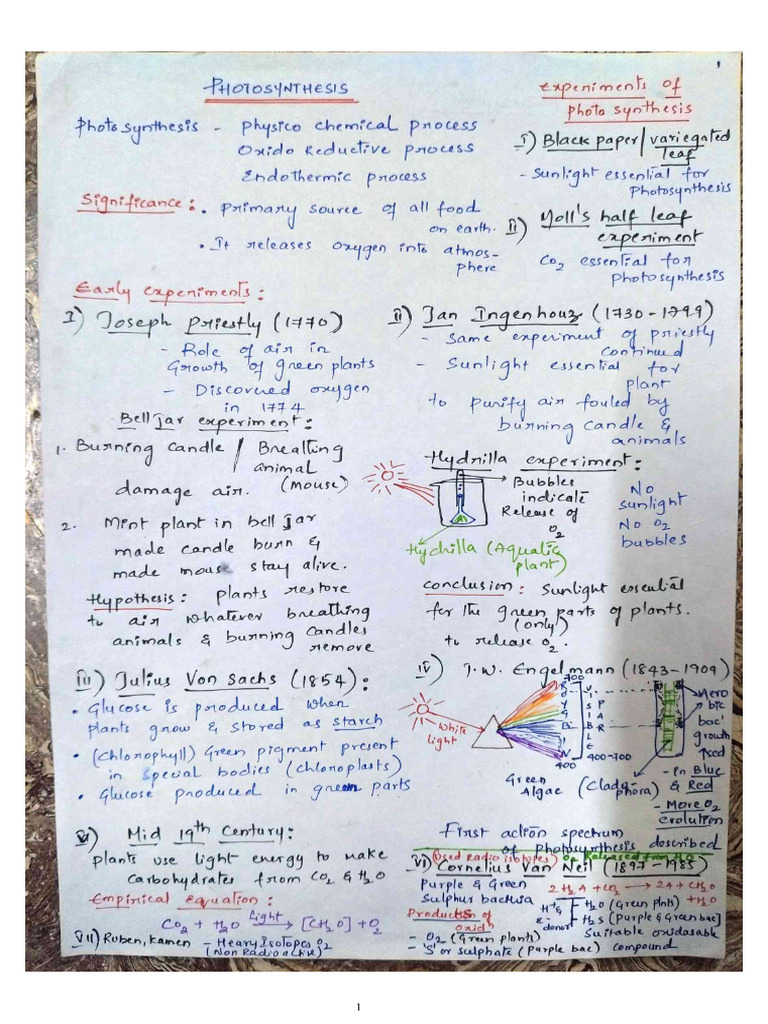 PHOTOSYNTHESIS
Photosynthesis - Physico chemical process
Oxido Reductive process
Endothermic process
Significance: • Primary source of all food
on earth.
• It releases oxygen into atmos-
phere
Experiments of
photo synthesis
I) Black paper/variegated
leaf
- Sunlight essential for
Photosynthesis
II) Moll's half leaf
experiment
CO2 essential for
photosynthesis
Early experiments:
I) Joseph Priestly (1770)
- Role of air in
Growth of green plants
- Discovered oxygen
in 1774
Bell jar experiment:
1. Burning candle / Breathing
animal
damage air. (Mouse)
2. Mint plant in bell jar
made candle burn &
made mouse stay alive.
Hypothesis: plants restore
to air whatever breathing
animals & burning candles
remove
II) Jan Ingenhouz (1730-1799)
- Same experiment of priestly
continued
- Sunlight essential for
plant
to purify air fouled by
burning candle &
animals
Hydrilla experiment:
Bubbles
indicate
Release of
O2
No
sunlight
No O2
bubbles
Hydrilla (Aquatic
plant)
Conclusion: Sunlight essential
for the green parts of plants.
(only)
to release O2.
III) Julius Von Sachs (1854):
• Glucose is produced when
plants grow & stored as starch
• (Chlorophyll) Green pigment present
in special bodies (chloroplasts)
• Glucose produced in green parts
IV) T.W. Engelmann (1843-1909)
White
light
700
400
VISIBLE
PAR
400-700
Aero
bic
bac'
growth
↑sed
Green
Algae (Cladophora)
- in Blue
& Red
- More O2
evolution
First action spectrum
of photosynthesis described
V) Mid 19th Century:
plants use light energy to make
carbohydrates from CO2 & H2O
Empirical equation:
CO2 + H2O Light→ [CH2O] + O2
VII) Ruben, Kamen - Heavy Isotopes O2
(Non Radioactive)
(Used Radio isotopes) O2 Released from H2O
VI) Cornelius Van Neil (1897-1985)
Purple & Green
Sulphur bacteria
2H2A + CO2 → 2A + CH2O
+H2O
H+ &
e-
donor
H2O (Green plnts)
H2S (Purple & Green bac)
Suitable oxidasable
compound
Products of
oxidn
- O2 (Green plants)
- 'S' or sulphate (Purple bac)
1